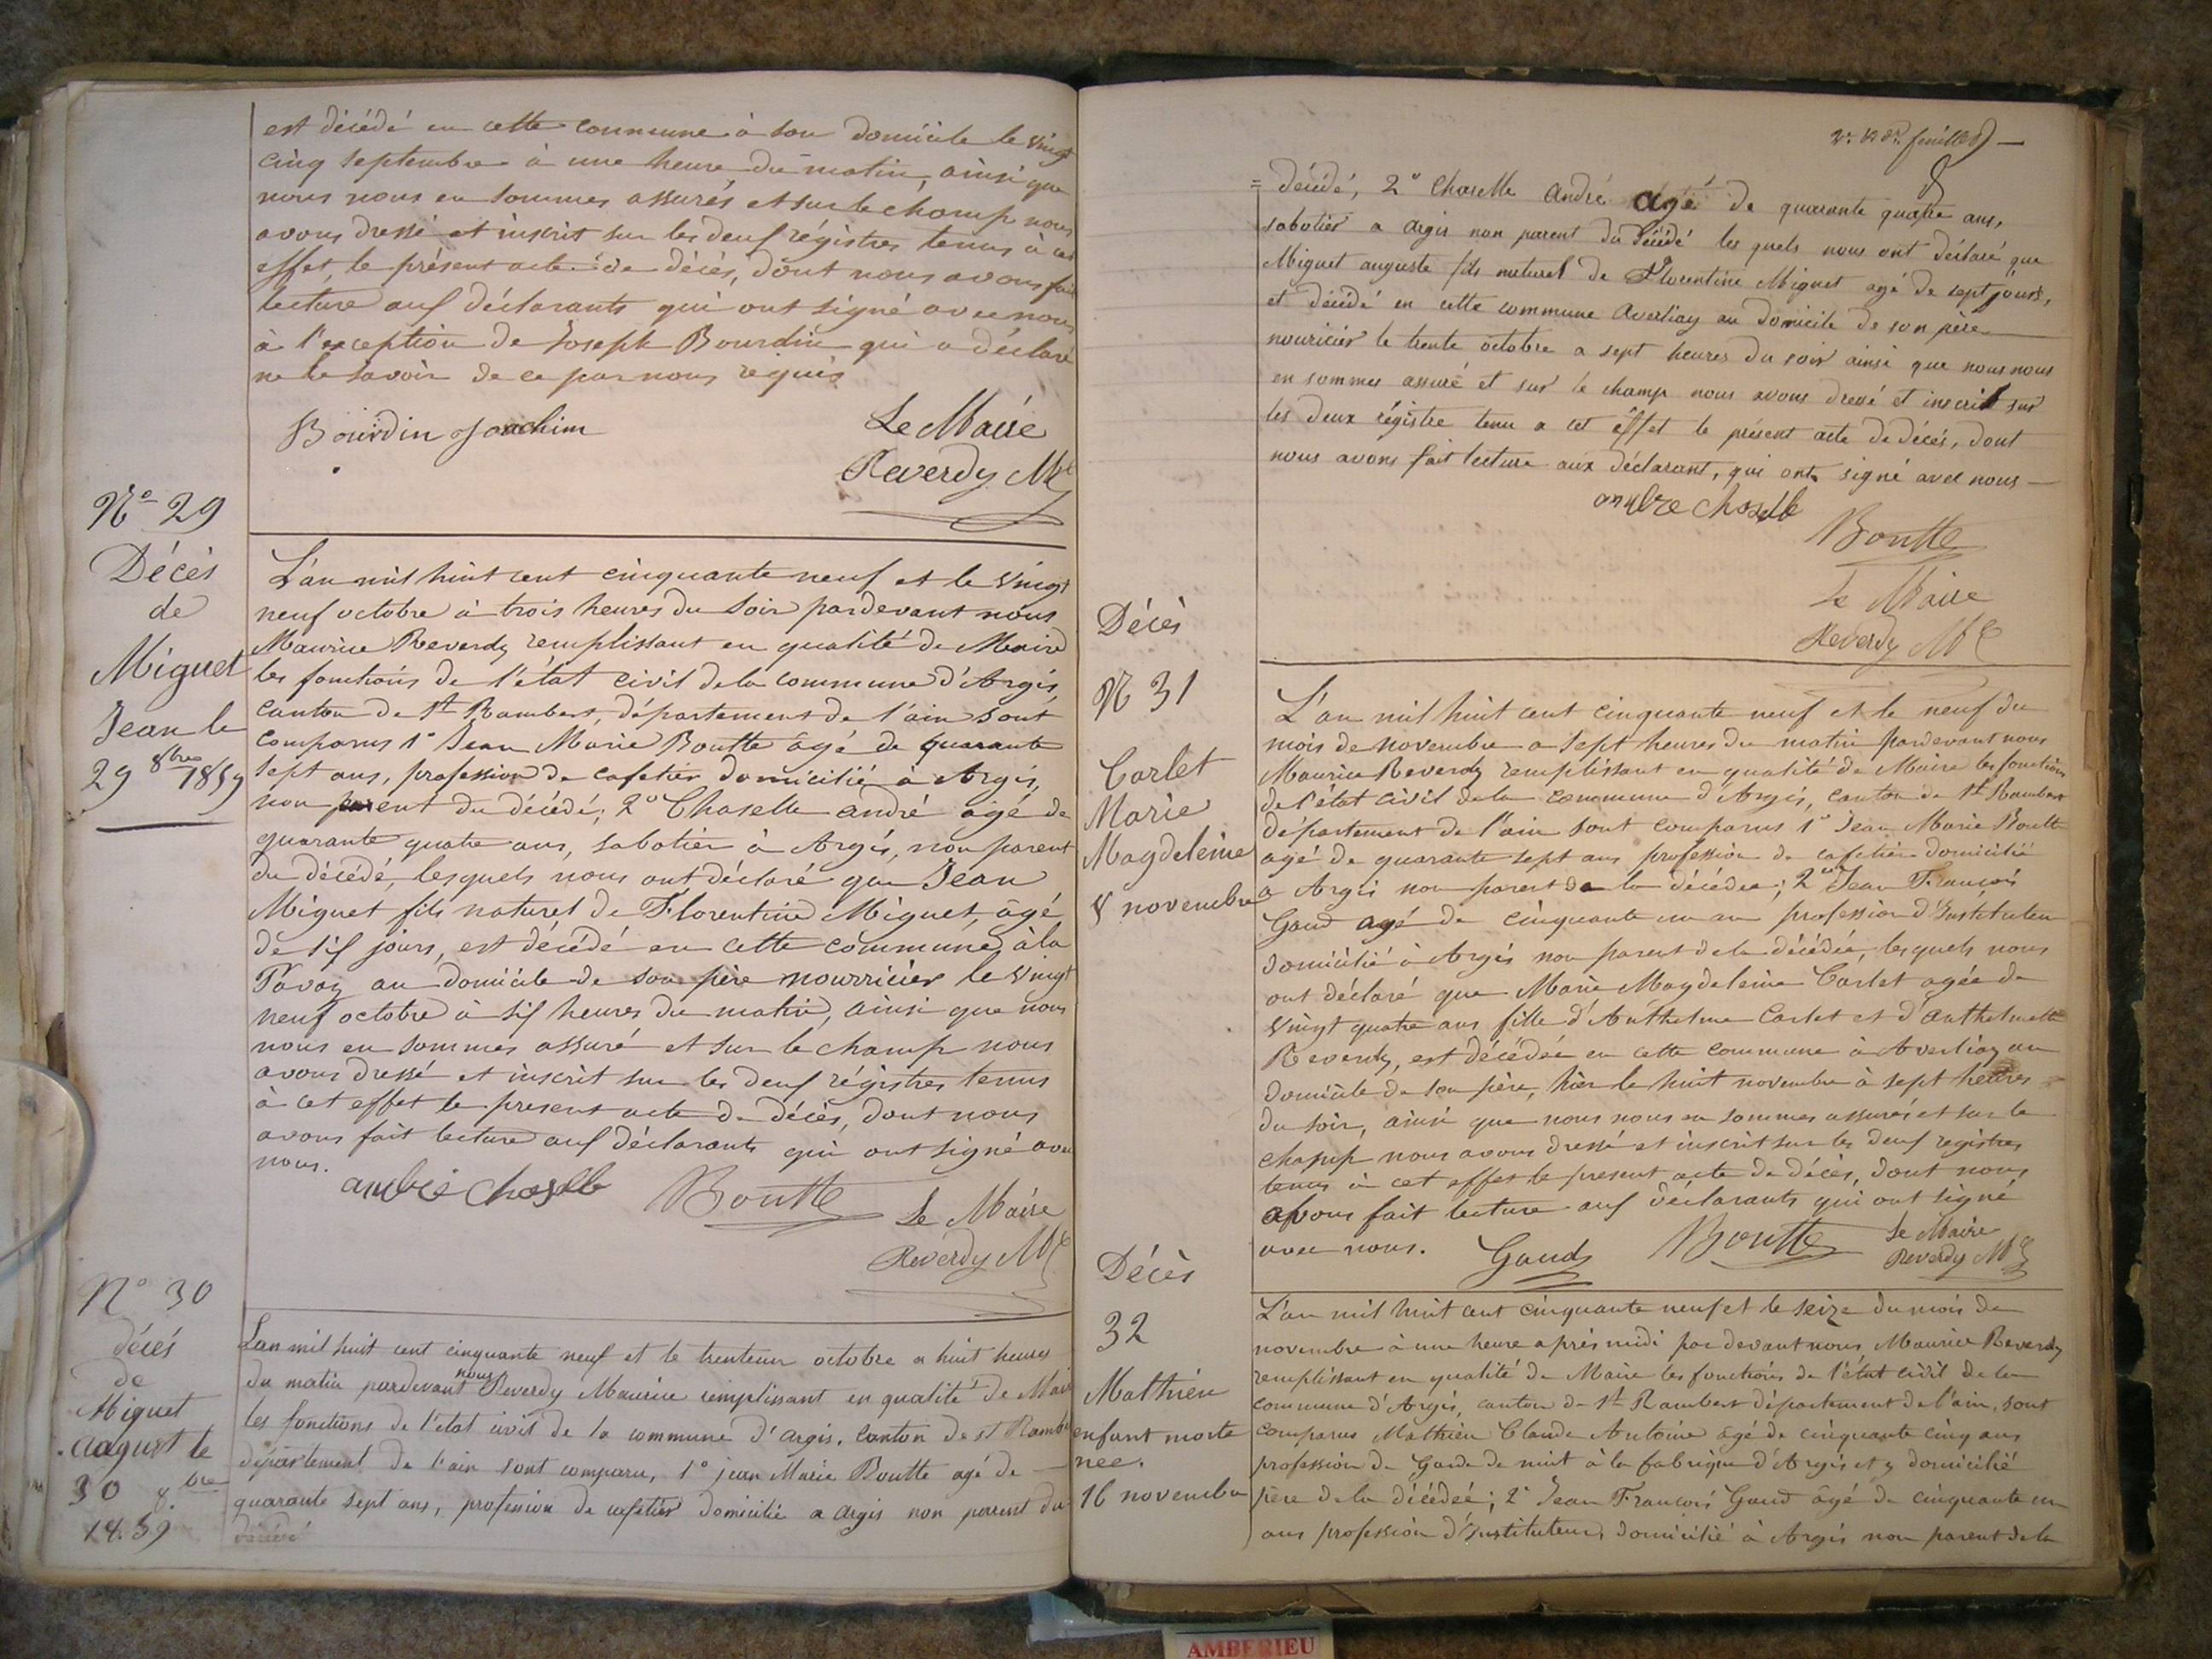 est décédé en cette commune à son domicile le vingt
cinq septembre à une heure du matin, ainsi que
nous nous en sommes assurés et sur le champ nous
avons dressé et inscrit sur les deux régistres tenus à cet
effet, le présent acte de décès, dont nous avons fait
lecture aux déclarants qui ont signé avec nous
à l'exception de Joseph Bourdin qui a déclaré
ne le savoir de ce par nous réquis
Bourdin Joachim
Le Maire
Reverdy Mce
No 29
Décès
de
Miguet
Jean le
29 8bre 1859
L'an mil huit cent cinquante neuf et le vingt
neuf octobre à trois heures du soir pardevant nous
Maurice Reverdy remplissant en qualité de Maire
les fonctions de l'état civil de la commune d'Argis,
canton de St Rambert, département de l'ain sont
comparus 1° Jean Marie Boutte âgé de quarante
sept ans, profession de cafetier domicilié à Argis,
non parent du décédé; 2° Chaselle andré âgé de
quarante quatre ans, sabotier à Argis, non parent
du décédé, lesquels nous ont déclaré que Jean
Miguet fils naturel de Florentine Miguet, âgé
de six jours, est décédé en cette commune, à la
au domicile de son père nourricier le vingt
neuf octobre à six heures du matin, ainsi que nous
nous en sommes assuré et sur le champ nous
avons dressé et inscrit sur les deux régistres tenus
à cet effet le present acte de décès, dont nous
avons fait lecture aux déclarants qui ont signé avec
nous.
andré Chaselle
Boutte
Le Maire
Reverdy Mce
No 30
décés
de
Miguet
august le
30 8.bre
1859
Lan mil huit cent cinquante neuf et le trenteun octobre a huit heures
du matin pardevant nous Reverdy Maurice remplissant en qualité de Maire
les fonctions de l'etat civil de la commune d'argis, canton de st Rambert
département de l'ain sont comparu, 1° jean Marie Boutte agé de
quarante sept ans, profession de cafetier domicilié a argis non parent du
décédé
feuillet
= décédé, 2° Chaselle André agé de quarante quatre ans,
sabotier a argis non parent du décédé les quels nous ont déclaré que
Miguet auguste fils naturel de Florentine Miguet agé de sept jours,
et décédé en cette commune Averliay au domicile de son père
nouricier le trente octobre a sept heures du soir ainsi que nous nous
en sommes assuré et sur le champ nous avons dressé et inscrit sur
les deux régistre tenu a cet éffet le présent acte de décès, dont
nous avons fait lecture aux déclarant, qui ont signé avec nous
andre Chaselle
Boutte
Le Maire
Reverdy Mce
Décès
N 31
Carlet
Marie
Magdeleine
8 novembre
L'an mil huit cent cinquante neuf et le neuf du
mois de novembre a sept heures du matin pardevant nous
Maurice Reverdy remplissant en qualité de Maire les fonctions
de l'état civil de la commune d'Argis, canton de St Rambert
département de l'ain sont comparus 1° Jean Marie Boutte
agé de quarante sept ans profession de cafetier domicilié
a Argis non parent de la décédée; 2° Jean François
Gaud agé de cinquante un an profession d'Instituteur
domicilié à Argis non parent de la décédée, lesquels nous
ont déclaré que Marie Magdeleine Carlet agée de
vingt quatre ans fille d'Anthelme Carlet et d'anthelmette
Reverdy, est décédée en cette commune à Averliay au
domicile de son père, hier le huit novembre à sept heures
du soir, ainsi que nous nous en sommes assurés et sur le
champ nous avons dressé et inscrit sur les deux registres
tenus à cet effet le present acte de décès, dont nous
avons fait lecture aux déclarants qui ont signé
avec nous.
Gaud
Boutte
Le Maire
Reverdy Mce
Décès
32
Mathieu
enfant morte
née.
16 novembre
L'an mil huit cent cinquante neuf et le seize du mois de
novembre à une heure après midi par devant nous Maurice Reverdy
remplissant en qualité de Maire les fonctions de l'état civil de la
commune d'Argis, canton de St Rambert département de l'ain, sont
comparus Mathieu Claude Antoine âgé de cinquante cinq ans
profession de Garde de nuit à la fabrique d'Argis et y domicilié
père de la décédée; 2° Jean François Gaud âgé de cinquante un
ans profession d'Instituteur, domicilié à Argis non parent de la
AMBERIEU